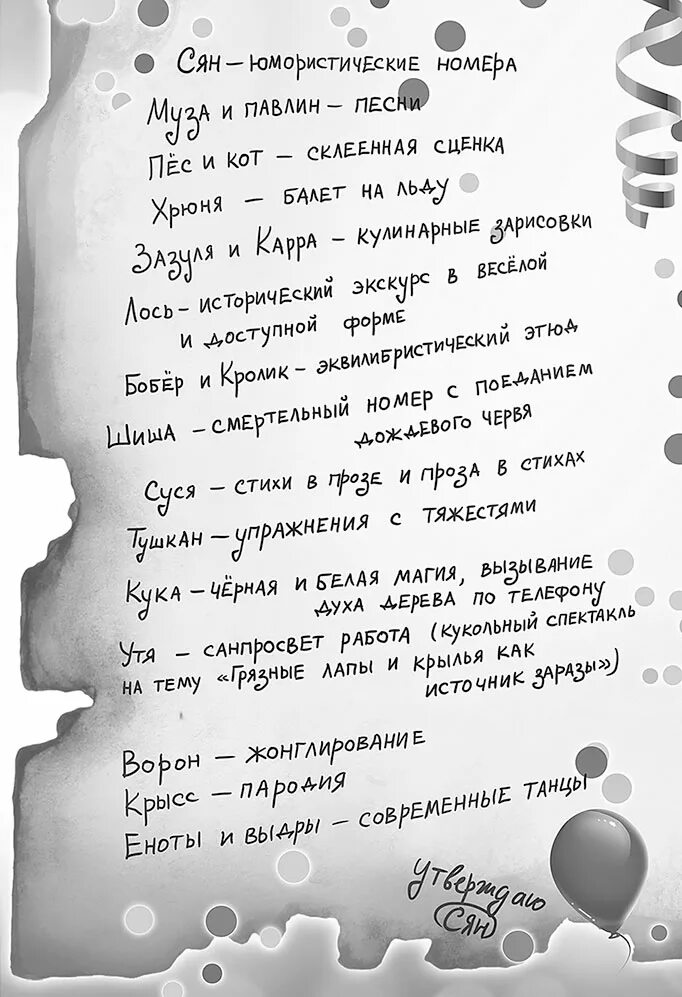 Сян – юмористические номера
Муза и павлин – песни
Пёс и кот – склеенная сценка
Хрюня – балет на льду
Зазуля и Карра – кулинарные зарисовки
Лось – исторический экскурс в весёлой
и доступной форме
Бобёр и Кролик – эквилибристический этюд
Шиша – смертельный номер с поеданием
дождевого червя
Суся – стихи в прозе и проза в стихах
Тушкан – упражнения с тяжестями
Кука – чёрная и белая магия, вызывание
духа дерева по телефону
Утя – санпросвет работа (кукольный спектакль
на тему «Грязные лапы и крылья как
источник заразы»)
Ворон – жонглирование
Крысс – пародия
Еноты и выдры – современные танцы
Утверждаю
Сян